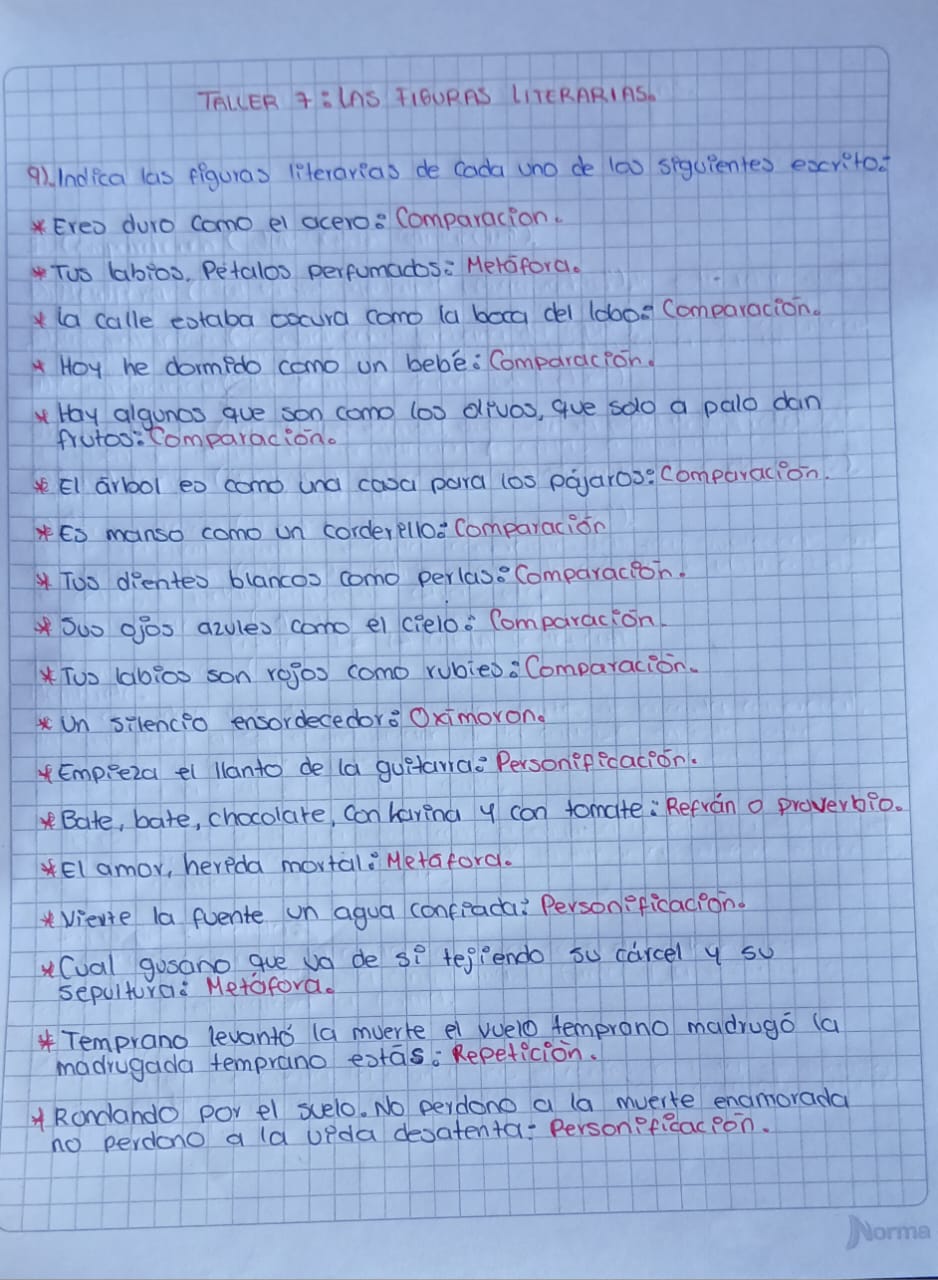 TALLER 7: LAS FIGURAS LITERARIAS.
9). Indica las figuras literarias de cada uno de los siguientes escrito:
* Eres duro como el acero: Comparacion.
* Tus labios, Pétalos perfumados: Metáfora.
* la calle estaba oscura como la boca del lobo: Comparación.
* Hoy he dormido como un bebé: Comparación.
* Hay algunos que son como los olivos, que solo a palo dan
frutos: Comparación.
* El árbol es como una casa para los pájaros: Comparación.
* Es manso como un corderello: Comparación
* Tus dientes blancos como perlas: Comparación.
* Sus ojos azules como el cielo: Comparación.
* Tus labios son rojos como rubies: Comparación.
* Un silencio ensordecedor: Oxímoron.
* Empieza el llanto de la guitarra: Personificación.
* Bate, bate, chocolate, con harina y con tomate: Refrán o proverbio.
* El amor, herida mortal: Metáfora.
* Vierte la fuente un agua confiada: Personificación.
* Cual gusano que va de si tejiendo su cárcel y su
sepultura: Metáfora.
* Temprano levantó la muerte el vuelo temprano madrugó la
madrugada temprano estás: Repetición.
* Rondando por el suelo. No perdono a la muerte enamorada
no perdono a la vida desatenta: Personificación.
Norma